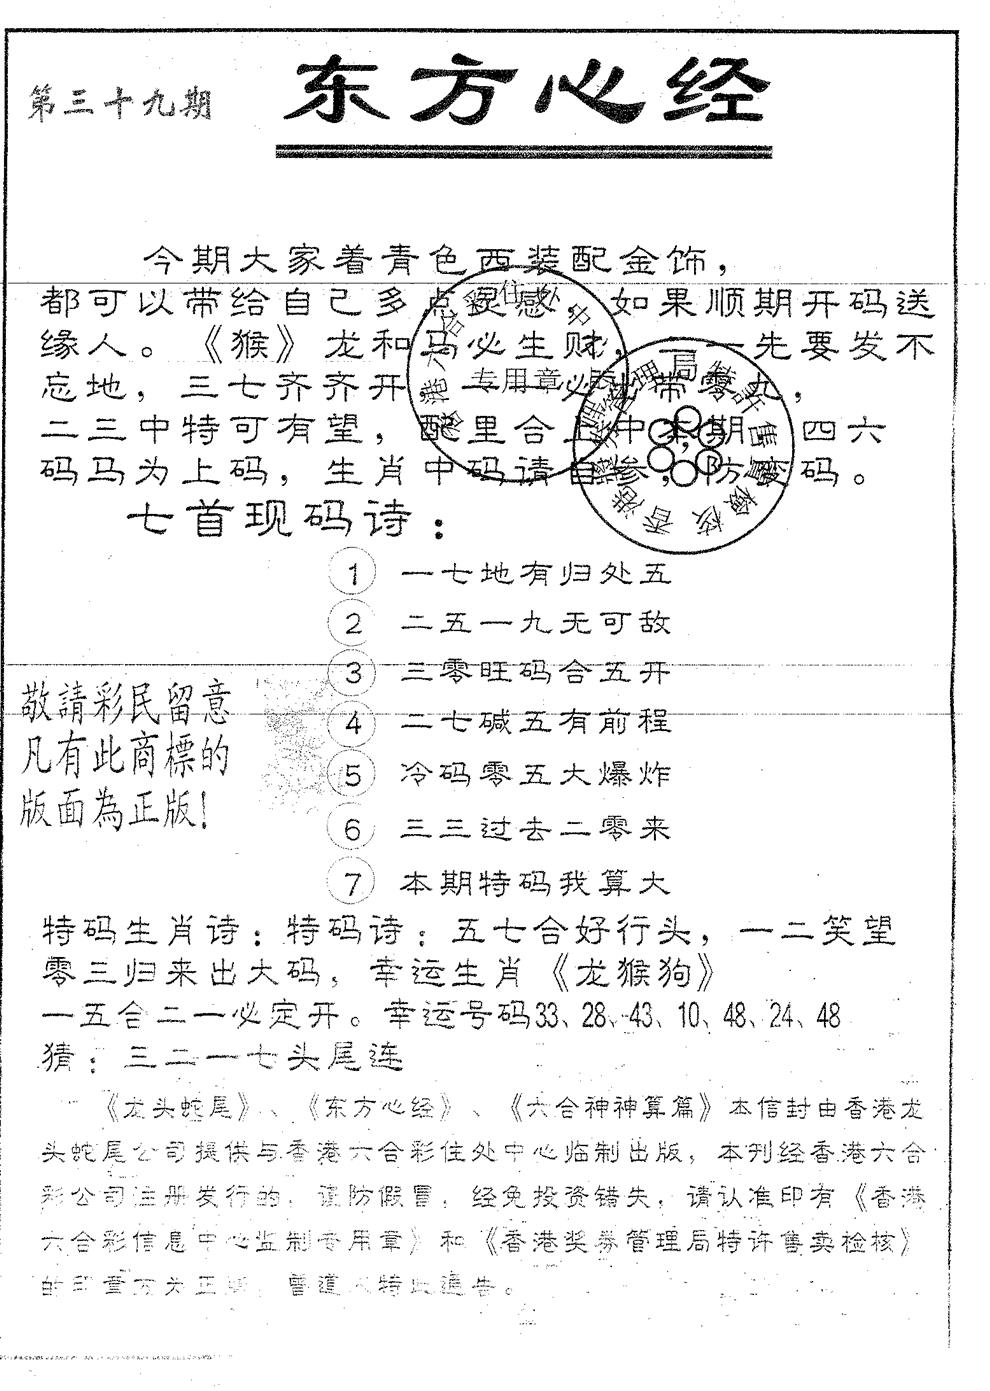 第三十九期
东方心经
今期大家着青色西装配金饰，
都可以带给自己多点灵感，如果顺期开码送
缘人。《猴》龙和马必生财，一一先要发不
忘地，三七齐齐开 必 带零九，
二三中特可有望，配里合上中本期，四六
码马为上码，生肖中码请自参，防 码。
七首现码诗：
1 一七地有归处五
2 二五一九无可敌
3 三零旺码合五开
4 二七碱五有前程
5 冷码零五大爆炸
6 三三过去二零来
7 本期特码我算大
敬請彩民留意
凡有此商標的
版面為正版！
特码生肖诗：特码诗：五七合好行头，一二笑望
零三归来出大码，幸运生肖《龙猴狗》
一五合二一必定开。幸运号码33、28、43、10、48、24、48
猜：三二一七头尾连
《龙头蛇尾》、《东方心经》、《六合神神算篇》本信封由香港龙
头蛇尾公司提供与香港六合彩住处中心临制出版，本刊经香港六合
彩公司注册发行的，谨防假冒，经免投资错失，请认准印有《香港
六合彩信息中心监制专用章》和《香港奖券管理局特许售卖检核》
的印章方为正 曾道人特此通告。
专用章
香港獎券管理局特許售賣檢核